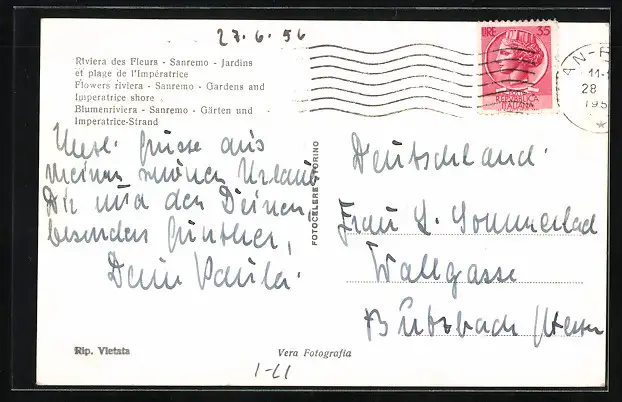 27.6.56
Riviera des Fleurs - Sanremo - Jardins
et plage de l'Impératrice
Flowers riviera - Sanremo - Gardens and
Imperatrice shore .
Blumenriviera - Sanremo - Gärten und
Imperatrice-Strand
Herzl. Grüsse aus
meinem schönen Urlaub
Dir und den Deinen,
besonders Günther,
Deine Paula.
Rip. Vietata
Vera Fotografia
FOTOCELERE TORINO
LIRE 35
REPVBBLICA
ITALIANA
28
195
Deutschland.
Frau L. Sommerlad
Wallgasse
Butzbach/Hessen